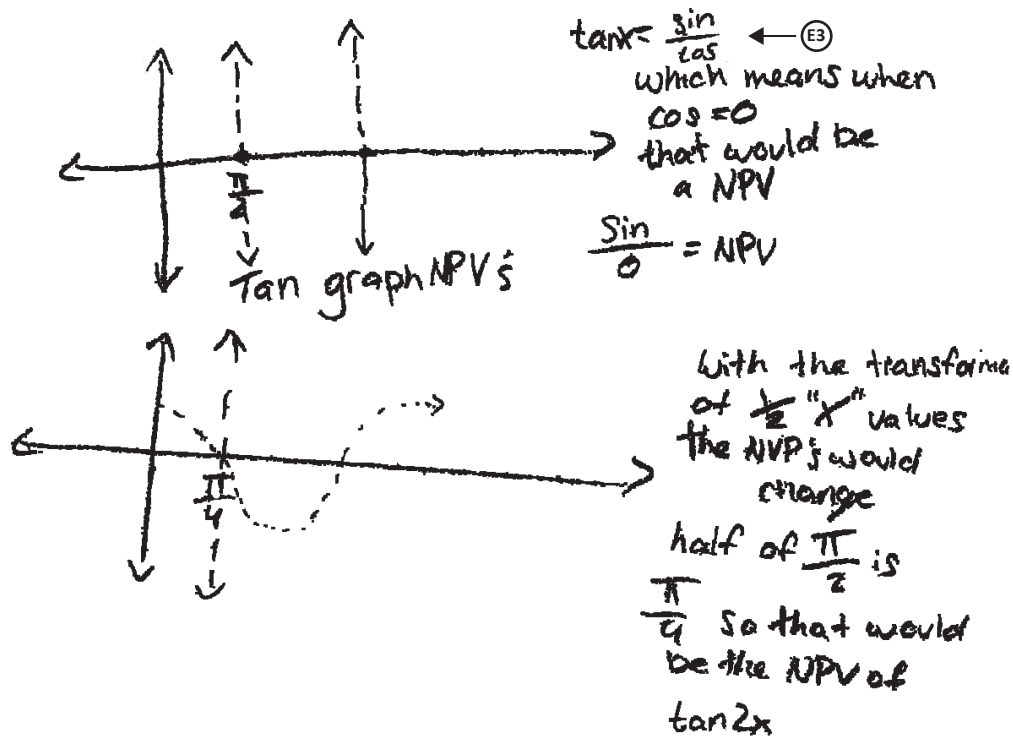 tanx = sin/cos ← E3
which means when
cos = 0
that would be
a NPV
sin/0 = NPV
π/2
Tan graph NPV's
with the transforma
of 1/2 "x" values
the NVP's would
change
half of π/2 is
π/4 so that would
be the NPV of
tan2x
π/4